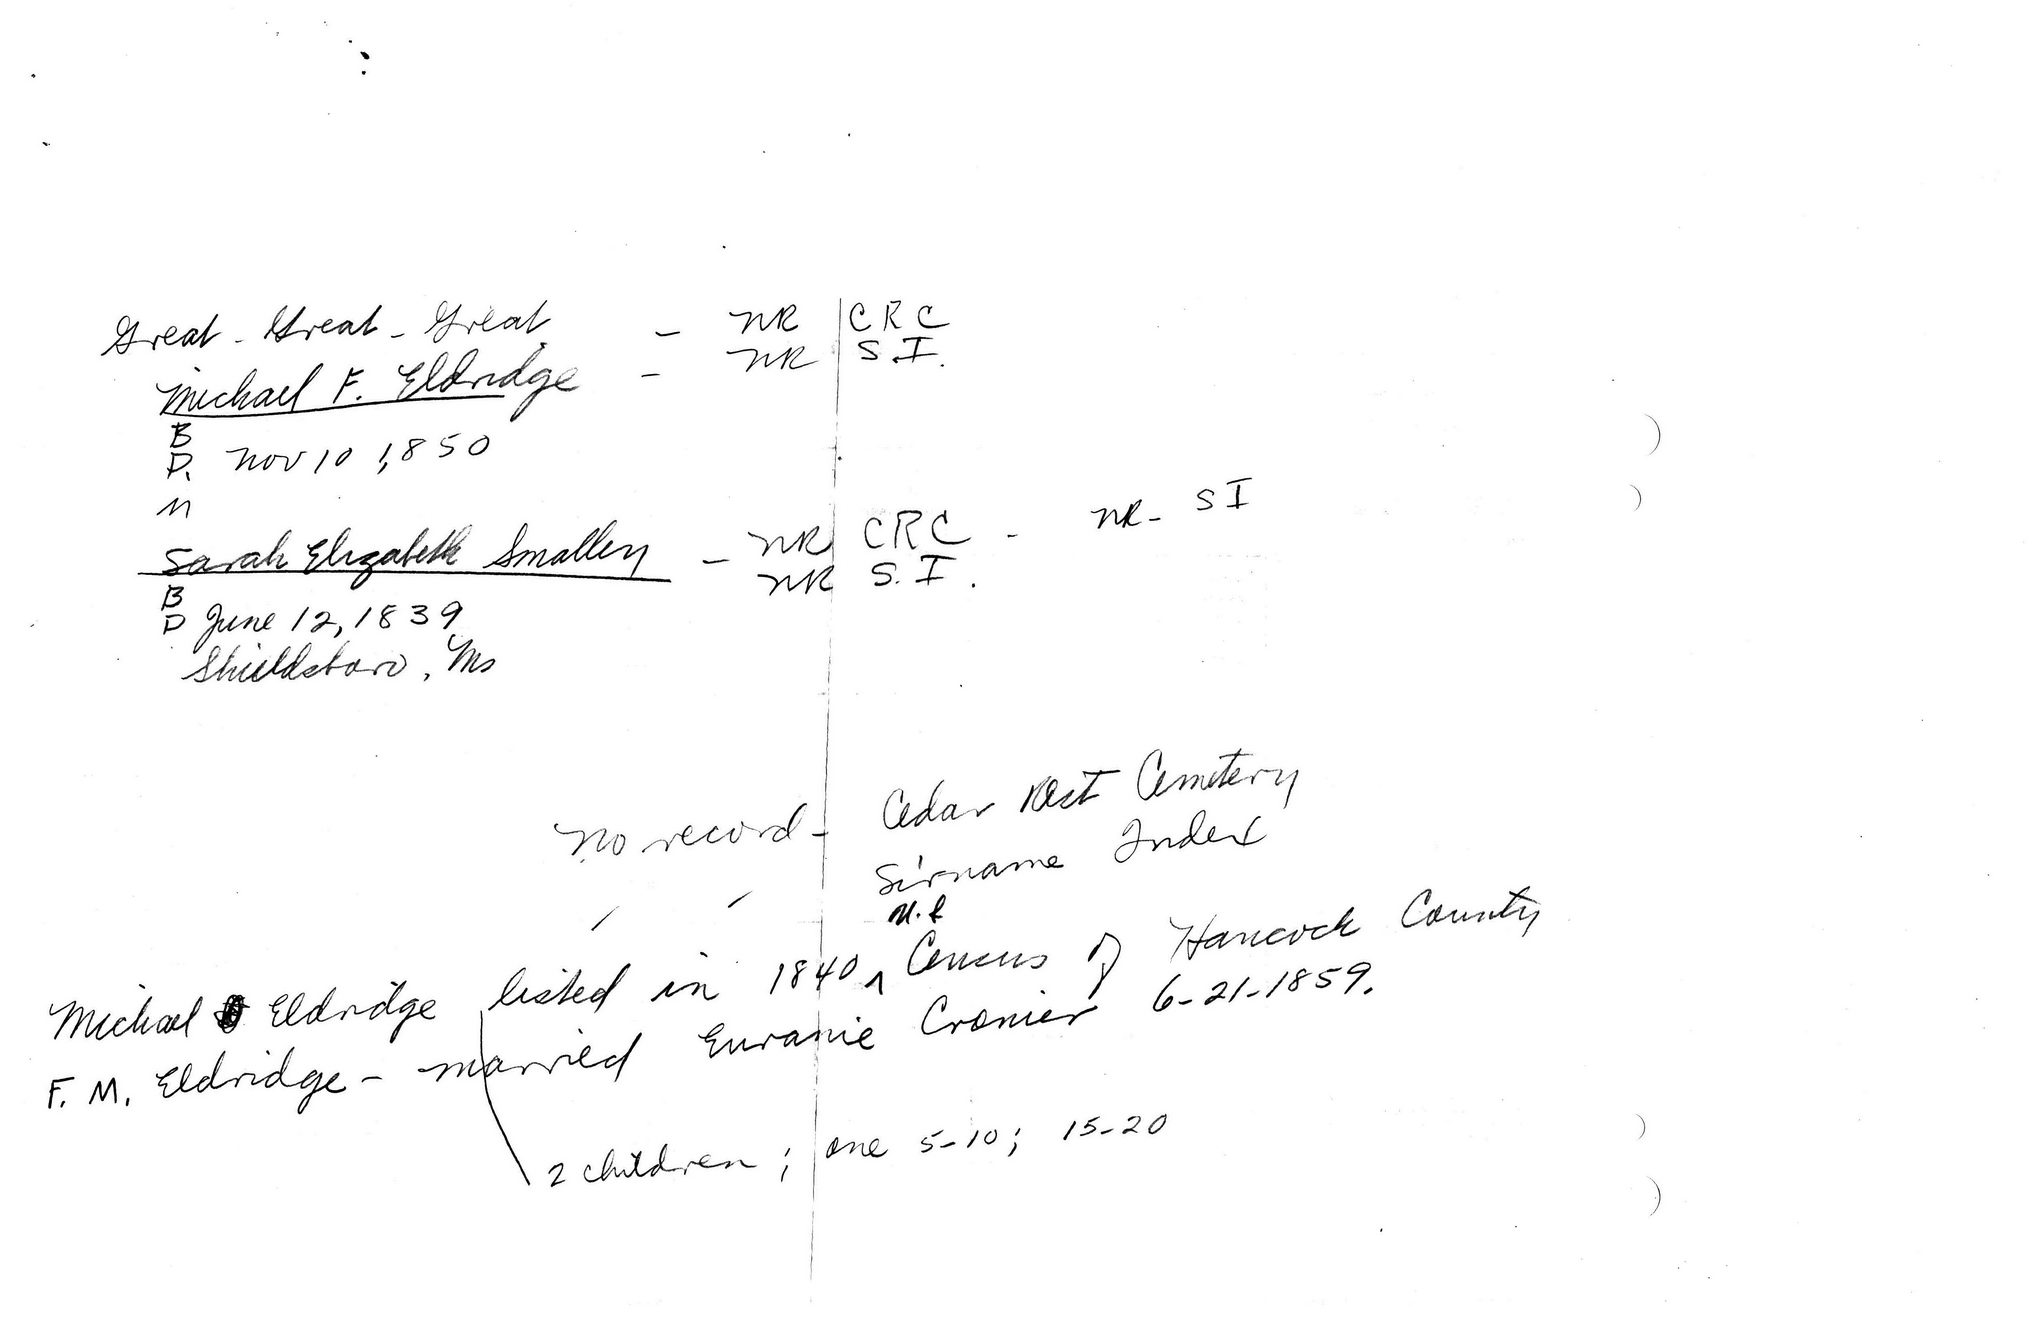 Great - Great - Great - NR CRC
Michael F. Eldridge - NR S.I.
B
D. Nov 10 1,850
M
Sarah Elizabeth Smalley - NR CRC - NR - SI
NR S.I.
B
D June 12, 1839
Shieldsboro, Ms
No record - Cedar Rest Cemetery
Sirname Index
Michael Eldridge listed in 1840 ^ Census of Hancock County
F. M. Eldridge - married Euranie Cronier 6-21-1859.
2 children ; one 5-10; 15-20